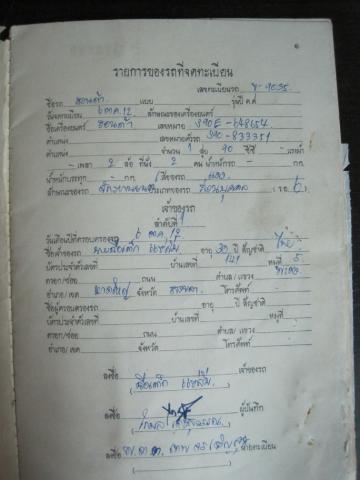 ๑
รายการของรถที่จดทะเบียน
เลขทะเบียนรถ ข-9035
ชื่อรถ ฮอนด้า แบบ รุ่นปี ค.ศ.
วันจดทะเบียน 6 ต.ค. 12 ลักษณะของเครื่องยนต์
ชื่อเครื่องยนต์ ฮอนด้า เลขหมาย S90E-648654
ตำแหน่ง เลขหมายตัวรถ S90-833351
ตำแหน่ง จำนวน 1 สูบ 90 ซีซี แรงม้า
เพลา 2 ล้อ ที่นั่ง 2 คน น้ำหนักรถ ก.ก.
น้ำหนักบรรทุก ก.ก. สีของรถ แดง
ลักษณะของรถ จักรยานยนต์ ประเภทของรถ ส่วนบุคคล (รย. 6)
เจ้าของรถ
ลำดับที่ 1
วันเดือนปีที่ครอบครองรถ 6 ต.ค. 12
ชื่อเจ้าของรถ อายุ 30 ปี สัญชาติ ไทย
บัตรประจำตัวเลขที่ บ้านเลขที่ 141 หมู่ที่ 5
ตรอก/ซอย ถนน ตำบล/แขวง
อำเภอ/เขต หาดใหญ่ จังหวัด สงขลา โทรศัพท์
ชื่อผู้ครอบครองรถ อายุ ปี สัญชาติ
บัตรประจำตัวเลขที่ บ้านเลขที่ หมู่ที่
ตรอก/ซอย ถนน ตำบล/แขวง
อำเภอ/เขต จังหวัด โทรศัพท์
ลงชื่อ เจ้าของรถ
ลงชื่อ ผู้บันทึก
ลงชื่อ นายทะเบียน